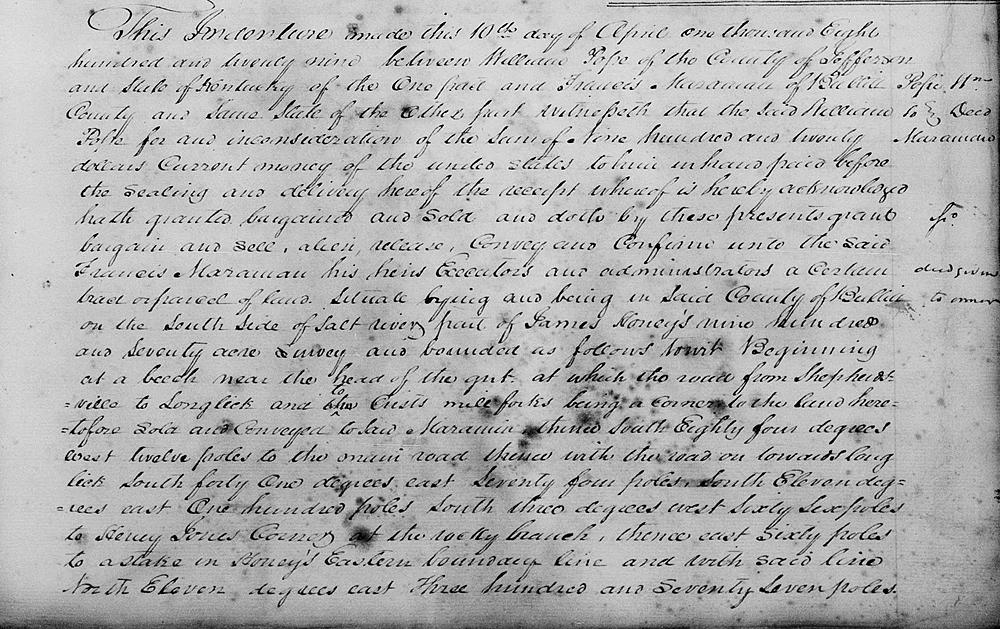 This Indenture made this 10th day of April one thousand Eight
hundred and twenty nine between William Pope of the County of Jefferson
and State of Kentucky of the One part and Francis Maraman of Bullitt
County and Same State of the Other part Witnesseth that the Said William
Pope for and inconsideration of the Sum of Nine hundred and twenty
dollars Current money of the united States to him in hand paid before
the Sealing and delivery hereof the receipt whereof is hereby acknowledged
hath granted bargained and Sold and doth by these presents grant
bargain and Sell, alien, release, Convey and Confirm unto the Said
Francis Maraman his heirs Executors and administrators a Certain
tract or parcel of land. Situate lying and being in Said County of Bullitt
on the South Side of Salt river part of James Honey's nine hundred
and Seventy acre Survey and bounded as follows towit Beginning
at a beech near the head of the gut. at which the road from Shepherds=
=ville to Longlick and to the Custs mill forks being a corner to the land here=
=tofore Sold and Conveyed to Said Maraman, thence South Eighty four degrees
west twelve poles to the main road thence with the road on towards long
lick South forty One degrees east Seventy four poles, South Eleven deg=
=rees east One hundred poles South three degrees west Sixty Six poles
to Henry Jones Corner at the rocky branch, thence east Sixty poles
to a stake in Honey's Eastern boundary line and with Said line
North Eleven degrees east Three hundred and Seventy Seven poles.
Pope Wm
to } Deed
Maraman
deed given
to owner